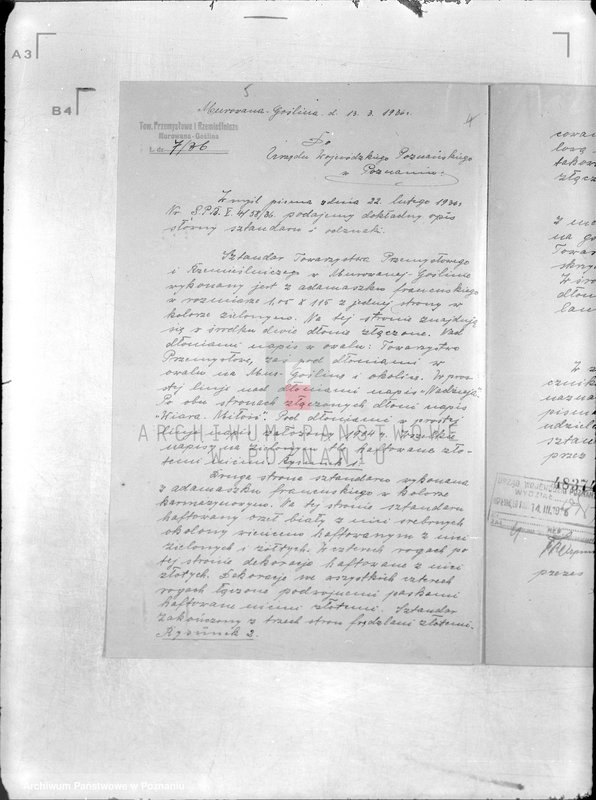 A3
B4
5
4
Murowana-Goślina. d. 13. 3. 1936r.
Tow. Przemysłowe i Rzemieślnicze
Murowana-Goślina
L. dz. 7/36
Do
Urzędu Wojewódzkiego Poznańskiego
w Poznaniu.
W myśl pisma z dnia 22. lutego 1936r.
Nr. podajemy dokładny opis
słowny sztandaru i odznaki.
Sztandar Towarzystwa Przemysłowego
i Rzemieślniczego w Murowanej-Goślinie
wykonany jest z adamaszku francuskiego
w rozmiarze 1.05 X 115 z jednej strony w
kolorze zielonym. Na tej stronie znajdują
się w środku dwie dłonie złączone. Nad
dłoniami napis w owalu: Towarzystwo
Przemysłowe, zaś pod dłoniami w
owalu na Mur-Goślinę i okolicę. W pros-
tej linje nad dłoniami napis "Nadzieja".
Po obu stronach złączonych dłoni napis
"Wiara. Miłość". Pod dłoniami w prostej
linje napis założony
napisy na zielonym tle haftowane zło-
temi nićmi. Rysunek 1.
Druga strona sztandaru wykonana
z adamaszku francuskiego w kolorze
karmazynowym. Na tej stronie sztandaru
haftowany orzeł biały z nici srebrnych
okolony wieńcem haftowanym z nici
zielonych i żółtych. W czterech rogach po
tej stronie dekoracje haftowane z nici
złotych. Dekoracje we wszystkich czterech
rogach łączone podwójnemi paskami
haftowane nićmi złotemi. Sztandar
zakończony z trzech stron frędzlami złotemi.
Rysunek 2.
ARCHIWUM PAŃSTWOWE
W POZNANIU
48374
URZĄD WOJEWÓDZKI
WYDZIAŁ
14. III. 1936
przez
przez
Archiwum Państwowe w Poznaniu